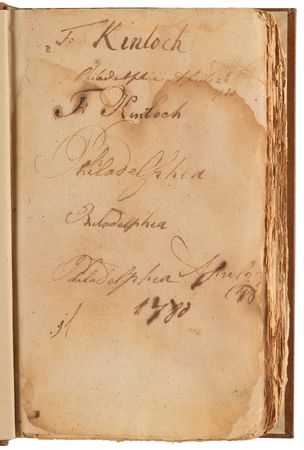 F: Kinloch
Philadelphia April 22
F: Kinloch
Philadelphea
Philadelphea
Philadelphea April
1780